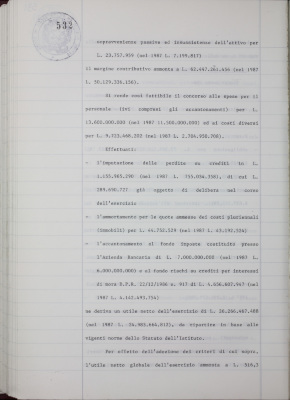 532
sopravvenienze passive ed insussistenze dell'attivo per
L. 23.757.959 (nel 1987 L. 7.199.817)
il margine contributivo ammonta a L. 62.447.261.456 (nel 1987
L. 50.129.336.150).
Si rende così fattibile il concorso alle spese per il
personale (ivi compresi gli accantonamenti) per L.
13.000.000.000 (nel 1987 11.500.000.000) ed ai costi diversi
per L. 9.323.468.202 (nel 1987 L. 2.704.950.700).
Effettuati:
- l'imputazione delle perdite su crediti in L.
1.155.965.290 (nel 1987 L. 755.034.350), di cui L.
589.690.727 già oggetto di delibera nel corso
dell'esercizio
- l'ammortamento per le quote ammesse dei costi pluriennali
(immobili) per L. 44.752.529 (nel 1987 L. 43.192.324)
- l'accantonamento al fondo imposte costituito presso
l'Azienda Bancaria di L. 7.000.000.000 (nel 1987 L.
6.000.000.000) e al fondo rischi su crediti per interessi
di mora D.P.R. 22/12/1986 n. 917 di L. 4.656.607.947 (nel
1987 L. 4.142.493.754)
ne deriva un utile netto dell'esercizio di L. 26.266.467.488
(nel 1987 L. 24.983.664.812), da ripartire in base alle
vigenti norme dello Statuto dell'Istituto.
Per effetto dell'adozione dei criteri di cui sopra,
l'utile netto globale dell'esercizio ammonta a L. 546,3